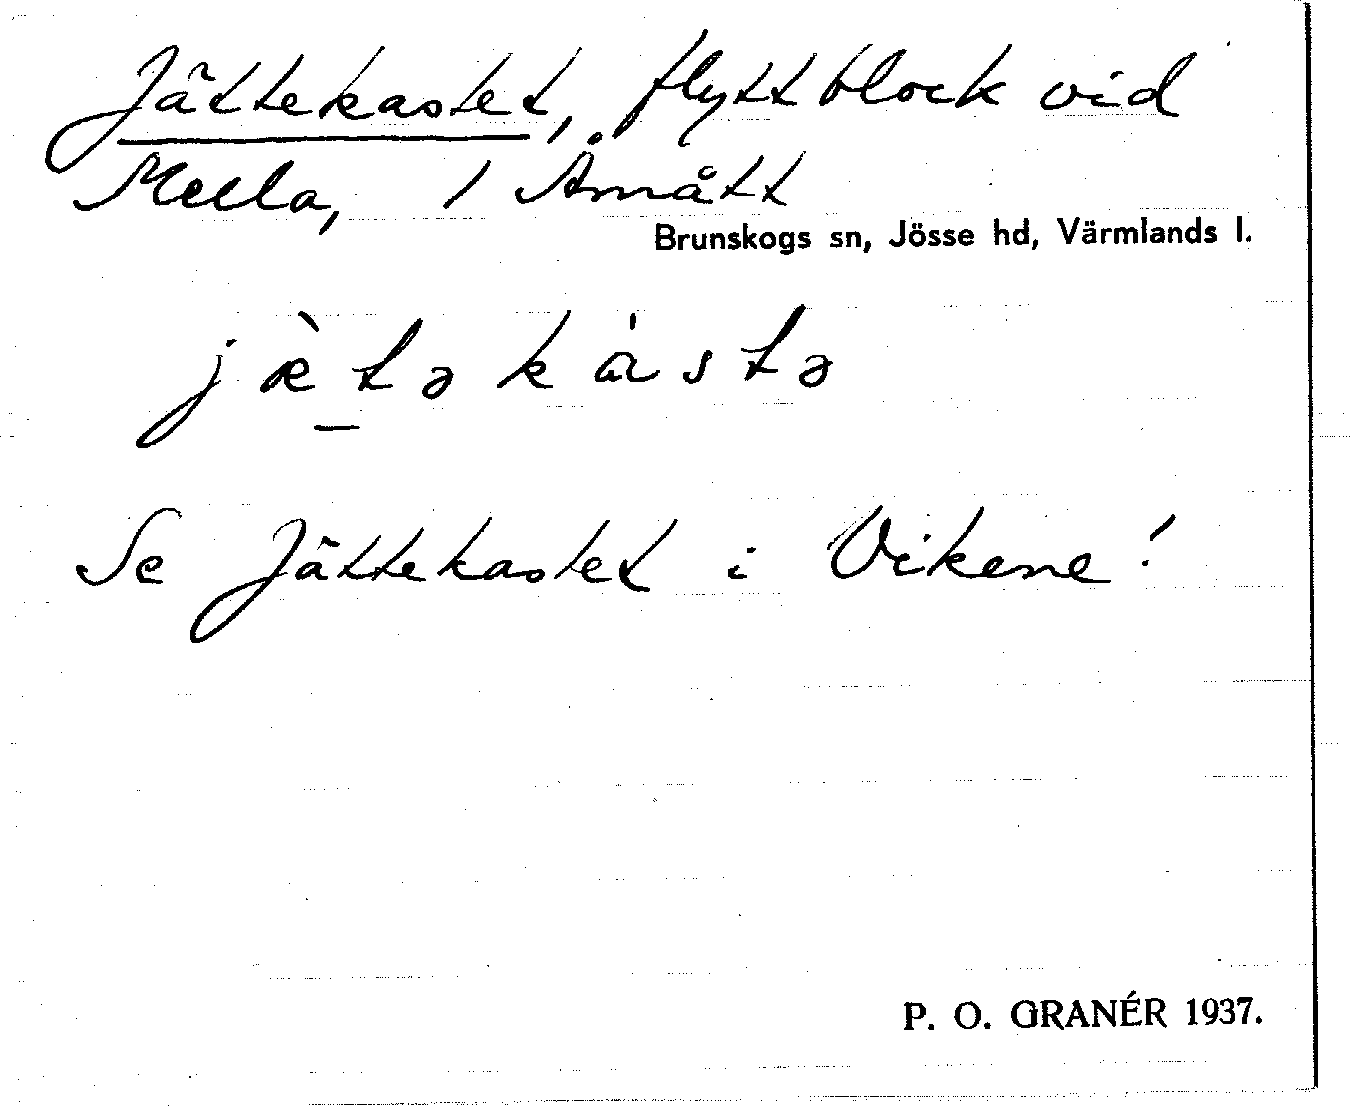 Jättekastet, flyttblock vid
Mella, 1 Åmått
Brunskogs sn, Jösse hd, Värmlands l.
jæ̀təkástə
Se Jättekastet i Vikene!
P. O. GRANÉR 1937.